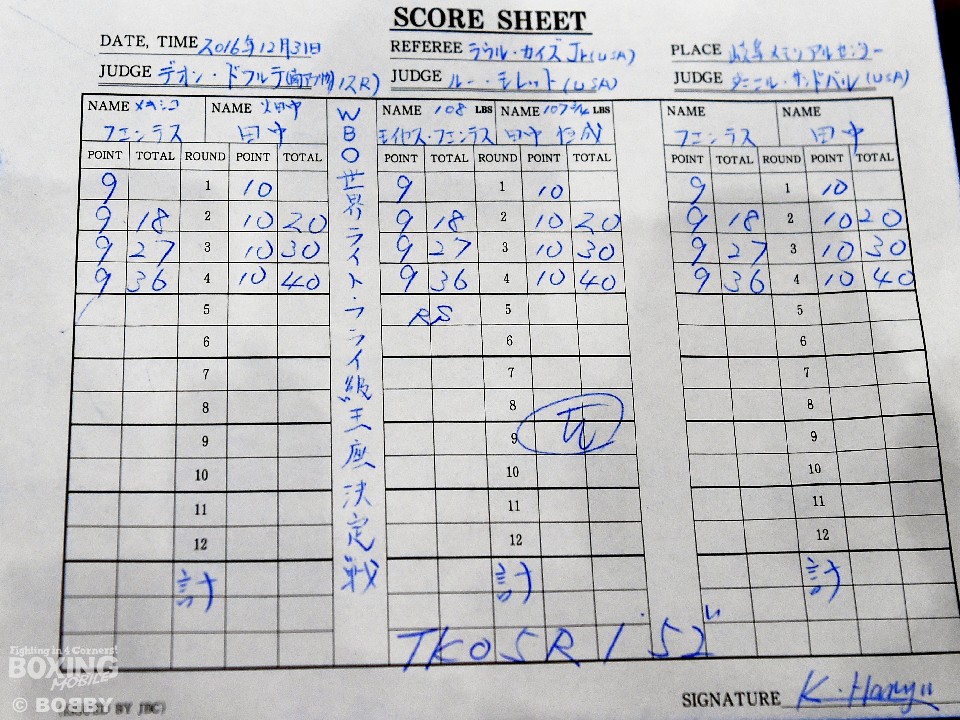 SCORE SHEET
DATE, TIME 2016年12月31日 REFEREE ラウル・カイズ Jr(USA) PLACE 岐阜メモリアルセンター
JUDGE デオン・ドフルテ JUDGE ルー・モレット(USA) JUDGE ダニエル・サンドバル(USA)
NAME メキシコ NAME 畑中 NAME 108 LBS NAME 107 3/4 LBS NAME NAME
フエンテス 田中 モイセス・フエンテス 田中 恒成 フエンテス 田中
POINT TOTAL ROUND POINT TOTAL POINT TOTAL ROUND POINT TOTAL POINT TOTAL ROUND POINT TOTAL
9 1 10 9 1 10 9 1 10
9 18 2 10 20 9 18 2 10 20 9 18 2 10 20
9 27 3 10 30 9 27 3 10 30 9 27 3 10 30
9 36 4 10 40 9 36 4 10 40 9 36 4 10 40
5 RS 5 5
6 6 6
7 7 7
8 8 8
9 9 9
10 10 10
11 11 11
12 12 12
計 計 計
WBO世界ライト・フライ級王座決定戦
TKO5R 1'52"
SIGNATURE K. Hanyu
(ISSUED BY JBC)
Fighting in 4 Corners!
BOXING
MOBILE
© BOBBY